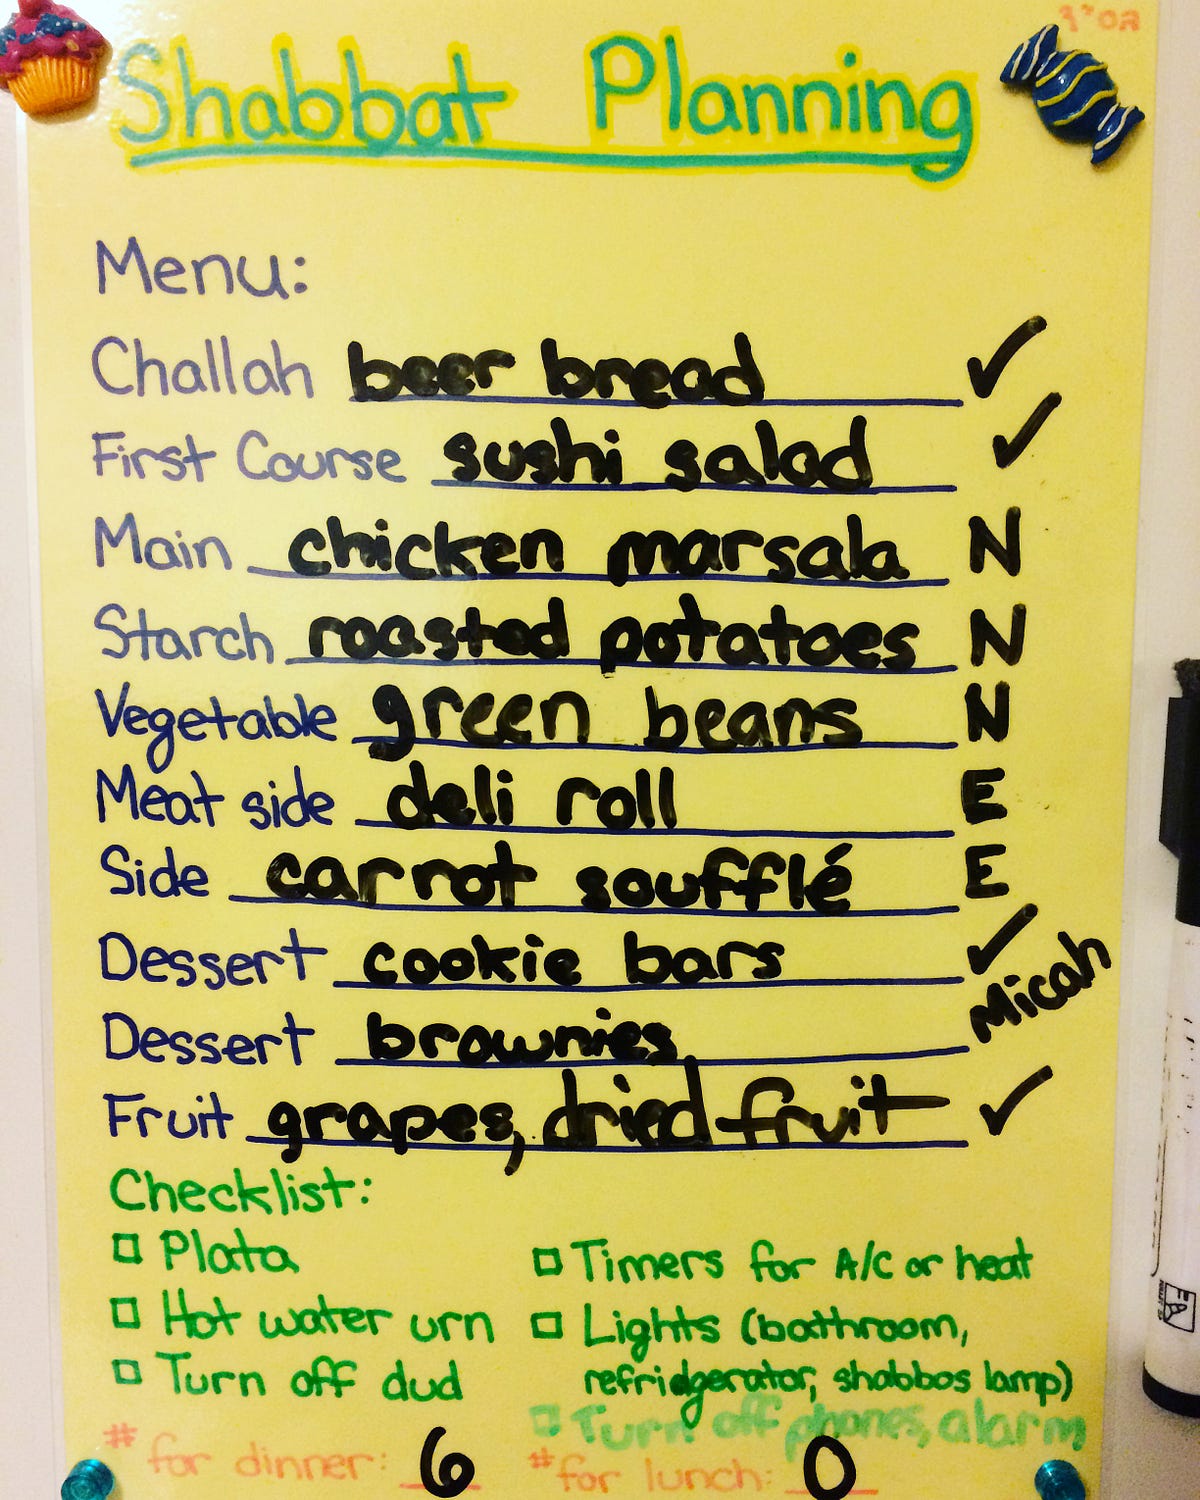 בס"ד
Shabbat Planning
Menu:
Challah beer bread ✓
First Course sushi salad ✓
Main chicken marsala N
Starch roasted potatoes N
Vegetable green beans N
Meat side deli roll E
Side carrot soufflé E
Dessert cookie bars ✓
Dessert brownies Micah
Fruit grapes, dried fruit ✓
Checklist:
□ Plata
□ Hot water urn
□ Turn off dud
□ Timers for A/C or heat
□ Lights (bathroom,
refridgerator, shabbos lamp)
□ Turn off phones, alarm
# for dinner: 6
# for lunch: 0